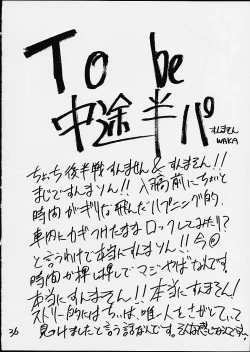 To be
中途半パ
すんません
WAKA
ちょっち後半戦すんません&すんません!!
まじですんません!! 入稿前にちょいと
時間がギリな飛んだハプニング的、
車内にカギつけたままロックしてみたり?
と言うわけで本当にすんません!! 今回
時間が押し押しでマジやばなんです。
本当にすんません!! 本当にすんません!
ストーリー的にはちぃは、唯一人をさがしていて
見つけましたと言う話なんです。そんな感じなんです。
36